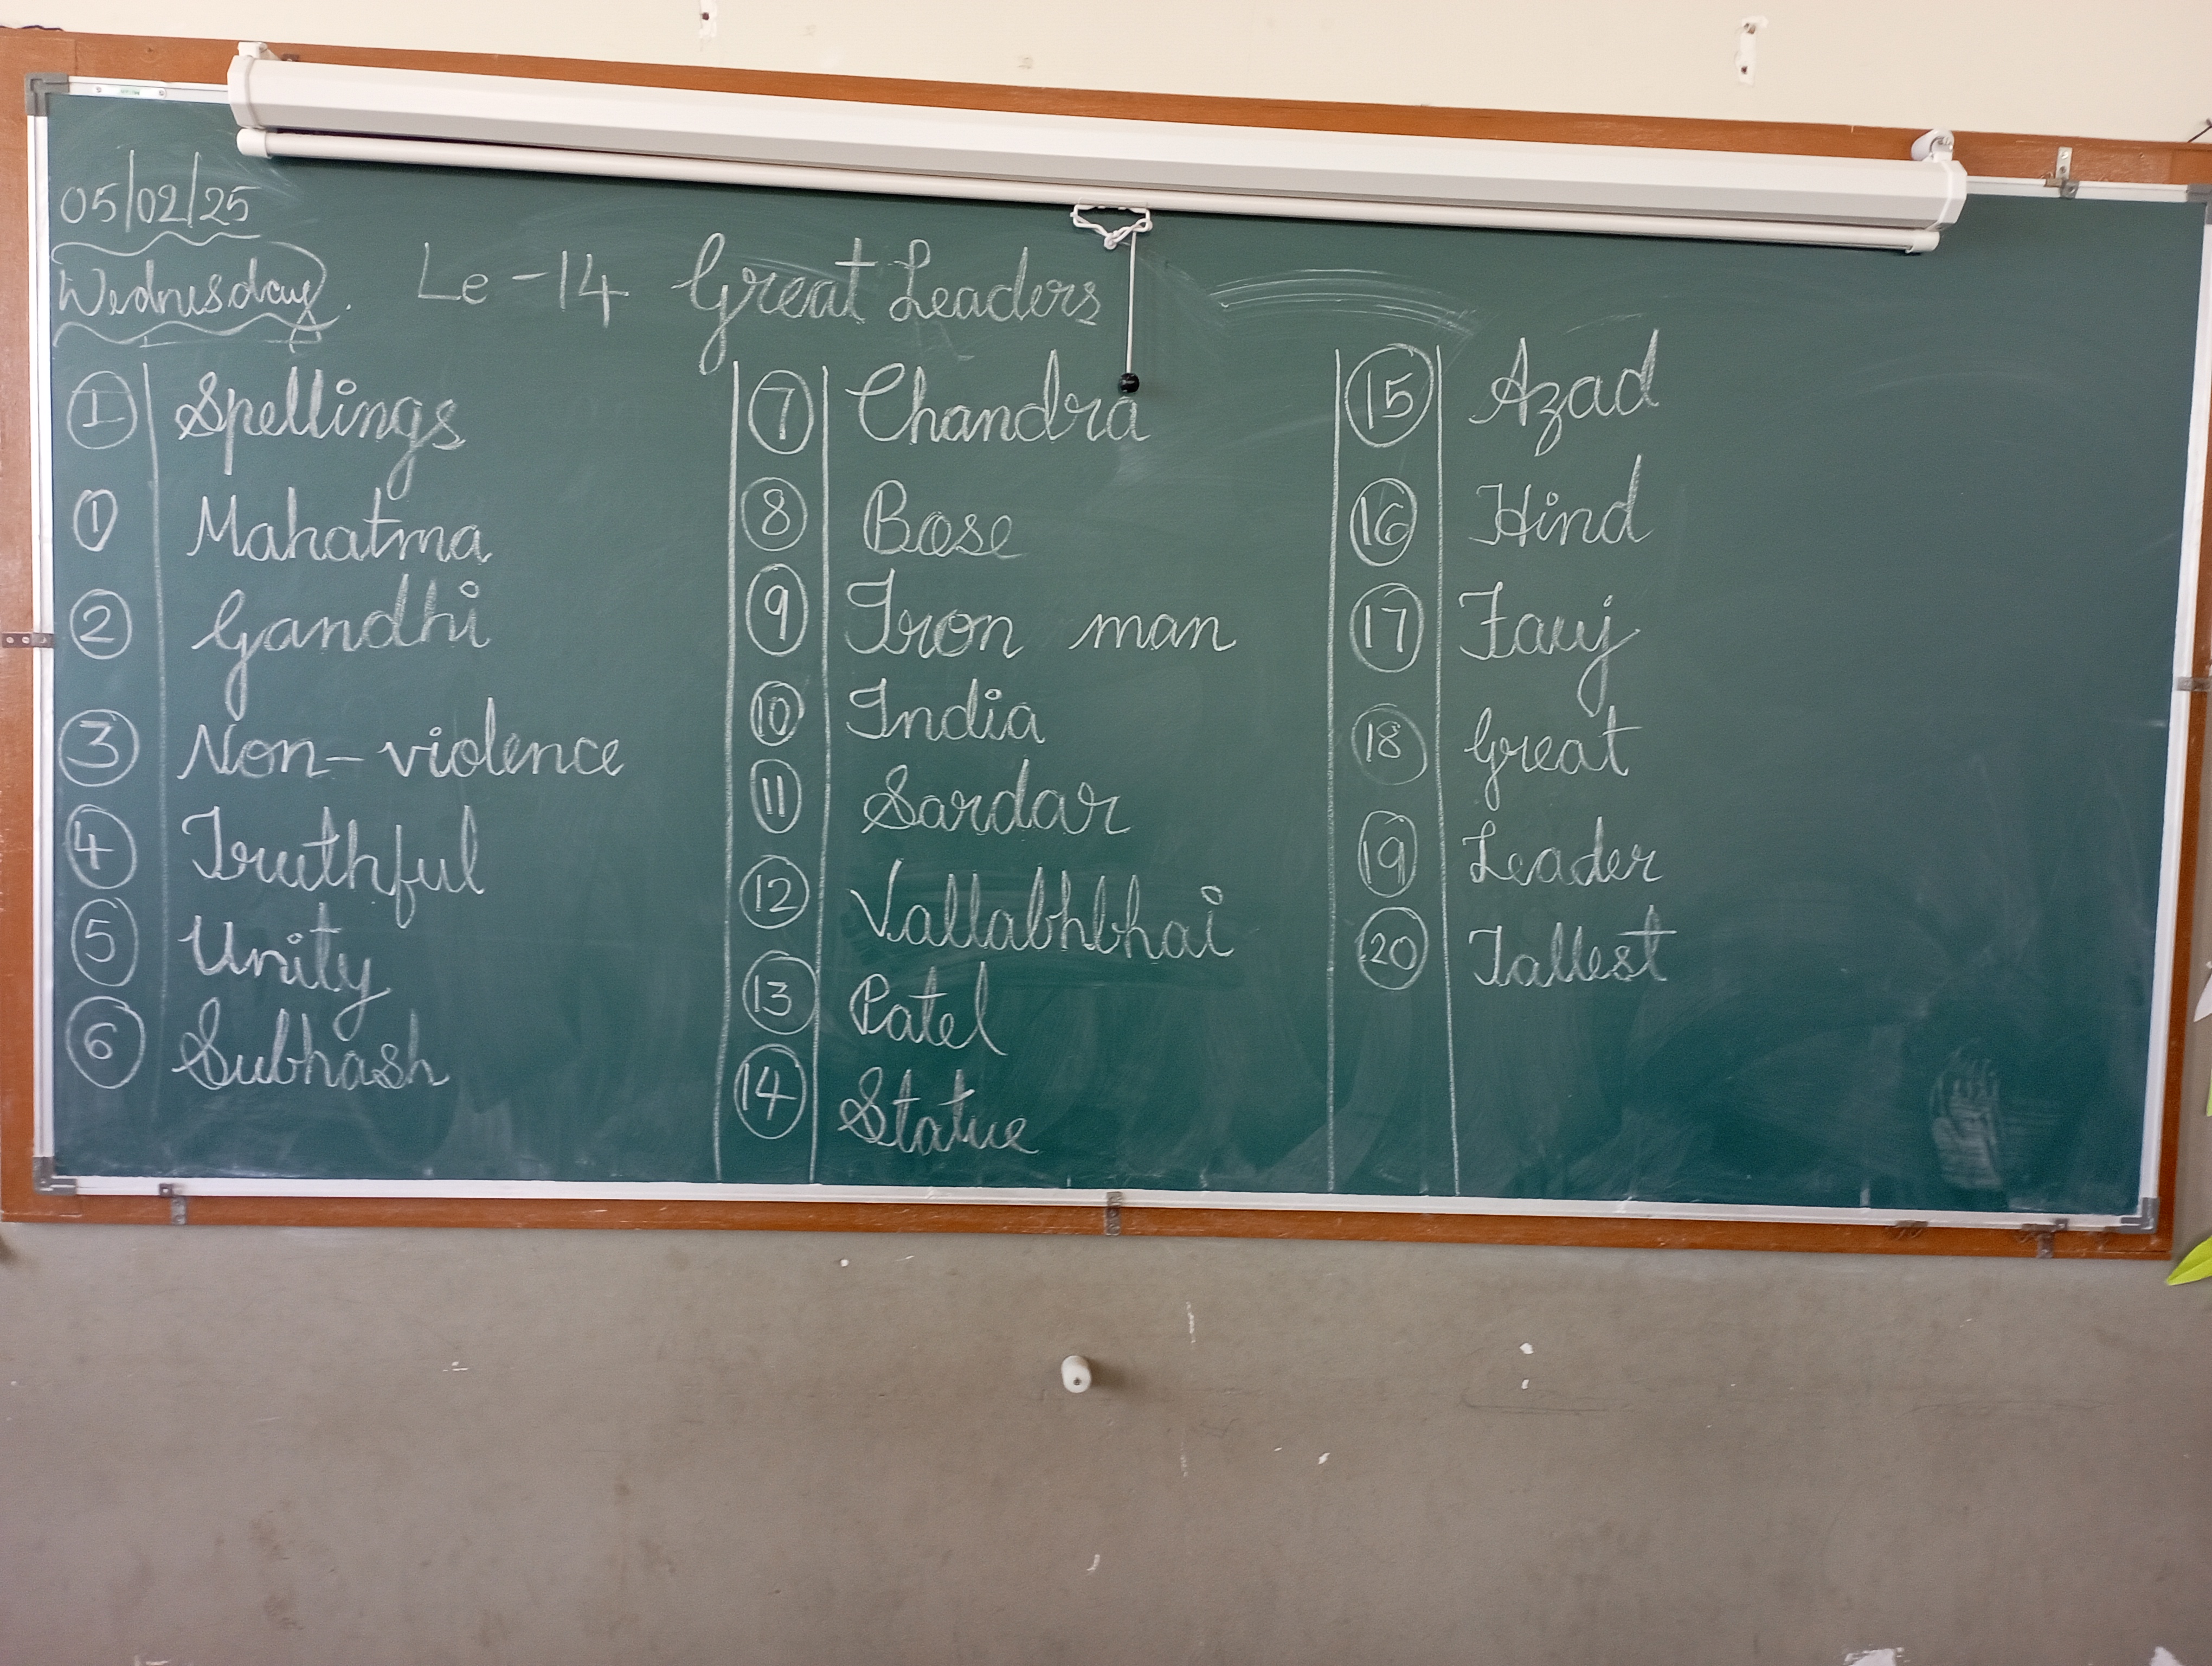 05/02/25
Wednesday.
Le-14 Great Leaders
I Spellings
1 Mahatma
2 Gandhi
3 Non-violence
4 Truthful
5 Unity
6 Subhash
7 Chandra
8 Bose
9 Iron man
10 India
11 Sardar
12 Vallabhbhai
13 Patel
14 Statue
15 Azad
16 Hind
17 Fauj
18 Great
19 Leader
20 Tallest